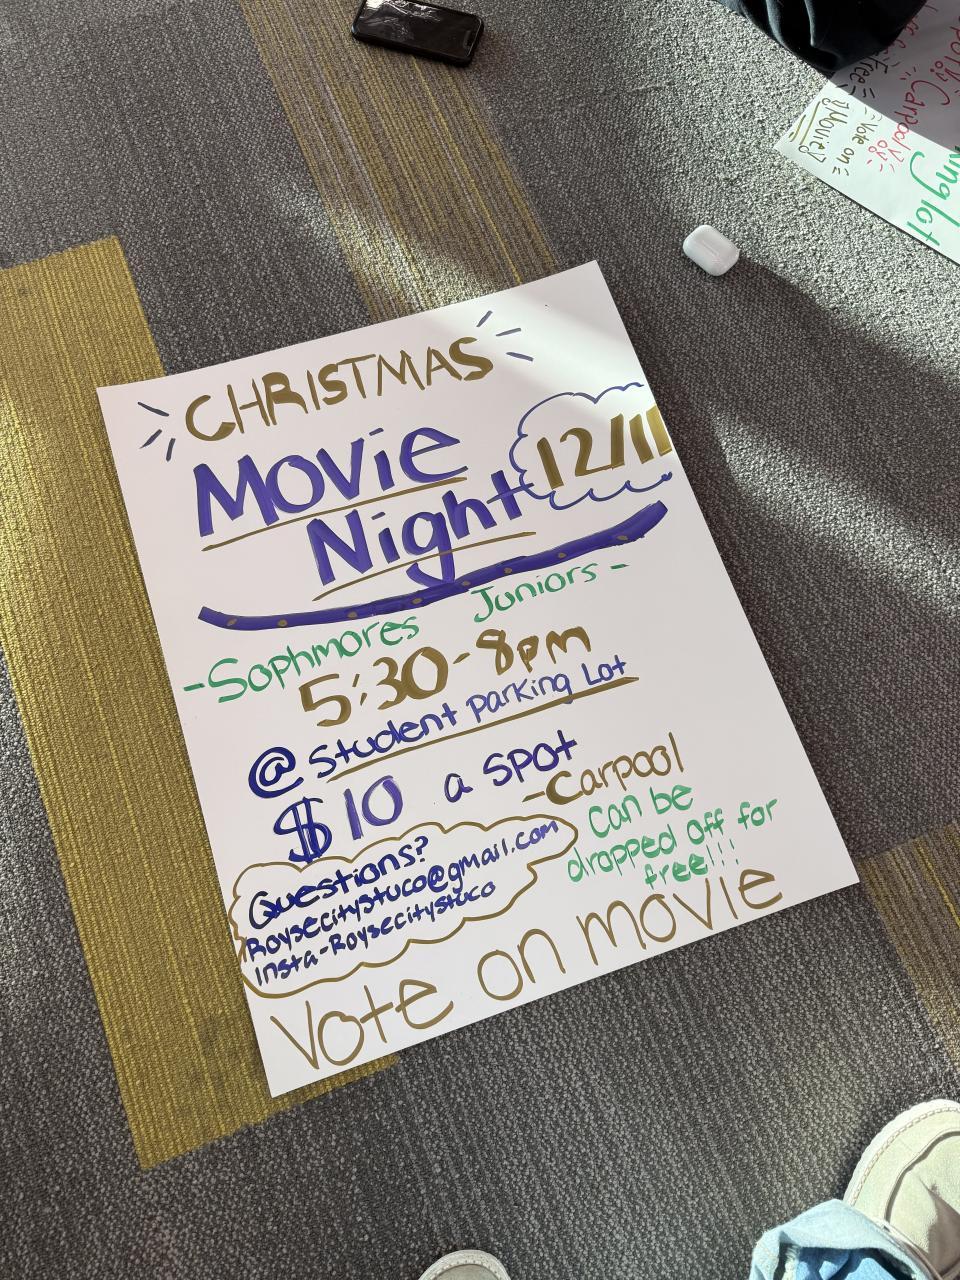 CHRISTMAS
Movie
Night
12/11
-Sophmores Juniors-
5:30-8pm
@ Student Parking Lot
$10 a spot
-Carpool
can be
dropped off for
free!!!
Questions?
Roysecitystuco@gmail.com
Insta-Roysecitystuco
Vote on movie
Carpool
Free
Vote on
Movie